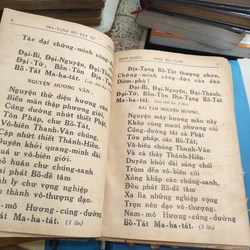 ĐỊA-TẠNG BỒ-TÁT
Tác đại chứng-minh công đức
Đại-Bi, Đại-Nguyện, Đại-Thánh,
Đại-Từ, Bổn-Tôn Địa-Tạng
Bồ-Tát Ma-ha-tát.
NGUYỆN HƯƠNG VĂN.
Nguyện thử diệu hương vân
Biến mãn thập phương giới,
Cúng dường nhứt thiết Phật,
Tôn Pháp, chư Bồ-Tát,
Vô-biên Thanh-văn chúng,
Cập nhứt thiết Thánh-Hiền.
Duyên khởi quang-minh đài
quá ư vô-biên giới.
chúng-sanh
phát Bồ-đề tâm
ly chư vọng nghiệp
thành vô-thượng đạo.
Hương-Cúng-dường
Bồ-Tát Ma-ha-tát. (3 lần)
Địa-Tạng Bồ-Tát thượng-nhơn,
Chứng-minh công-đức của đàn
Đại-Bi, Đại-Nguyện, Đại-Thánh,
Đại-Từ, Bổn-Tôn Địa-Tạng Bồ-Tát
Ma-ha-tát.
BÀI NGUYỆN HƯƠNG.
Nguyện mây hương mầu này
Khắp cùng mười phương cõi
Cúng dường tất cả Phật,
Tôn Pháp, các Bồ-Tát,
Vô-biên chúng Thanh-văn
Và cả thảy Thánh-Hiền
Duyên khởi đài sáng chói
Trùm đến vô-biên cõi,
Xông khắp các chúng-sanh,
Đều phát Bồ-đề tâm
Xa lìa những nghiệp vọng
Trọn nên đạo vô-thượng.
Nam-mô Hương-cúng-dường
Bồ-Tát Ma-ha-tát. (3 lần)